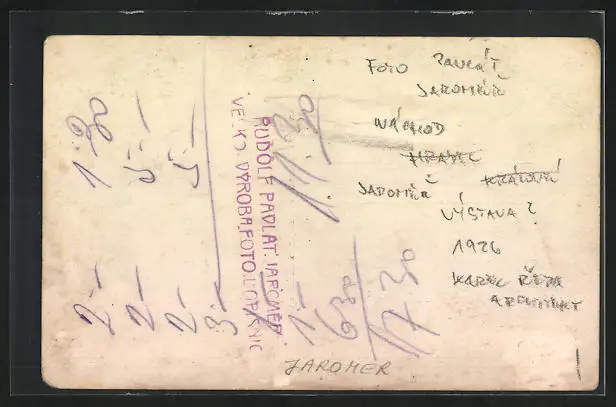 FOTO PAVLÁT
JAROMĚŘ
NÁCHOD
HRADEC
KRÁLOVÉ
JAROMĚŘ
VÝSTAVA?
1926
KAREL ŘEPA
ARCHITEKT
RUDOLF PAVLAT JAROMĚŘ
VELKOVÝROBA FOTO.POHLEDNIC
1·30
5·—
5·—
11.30
2·—
2·—
2·—
3·—
1·—
6 30
17 30
JAROMER